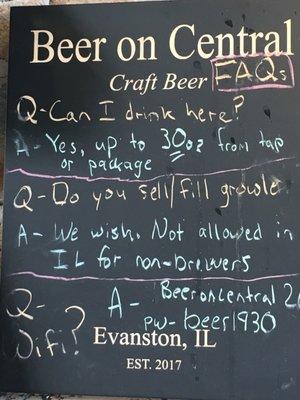 Beer on Central
Craft Beer FAQs
Q-Can I drink here?
A-Yes, up to 30oz from tap
or package
Q-Do you sell/fill growle
A-We wish. Not allowed in
IL for non-brewers
Q-Wifi?
A-Beeroncentral 2
pw-beer1930
Evanston, IL
EST. 2017